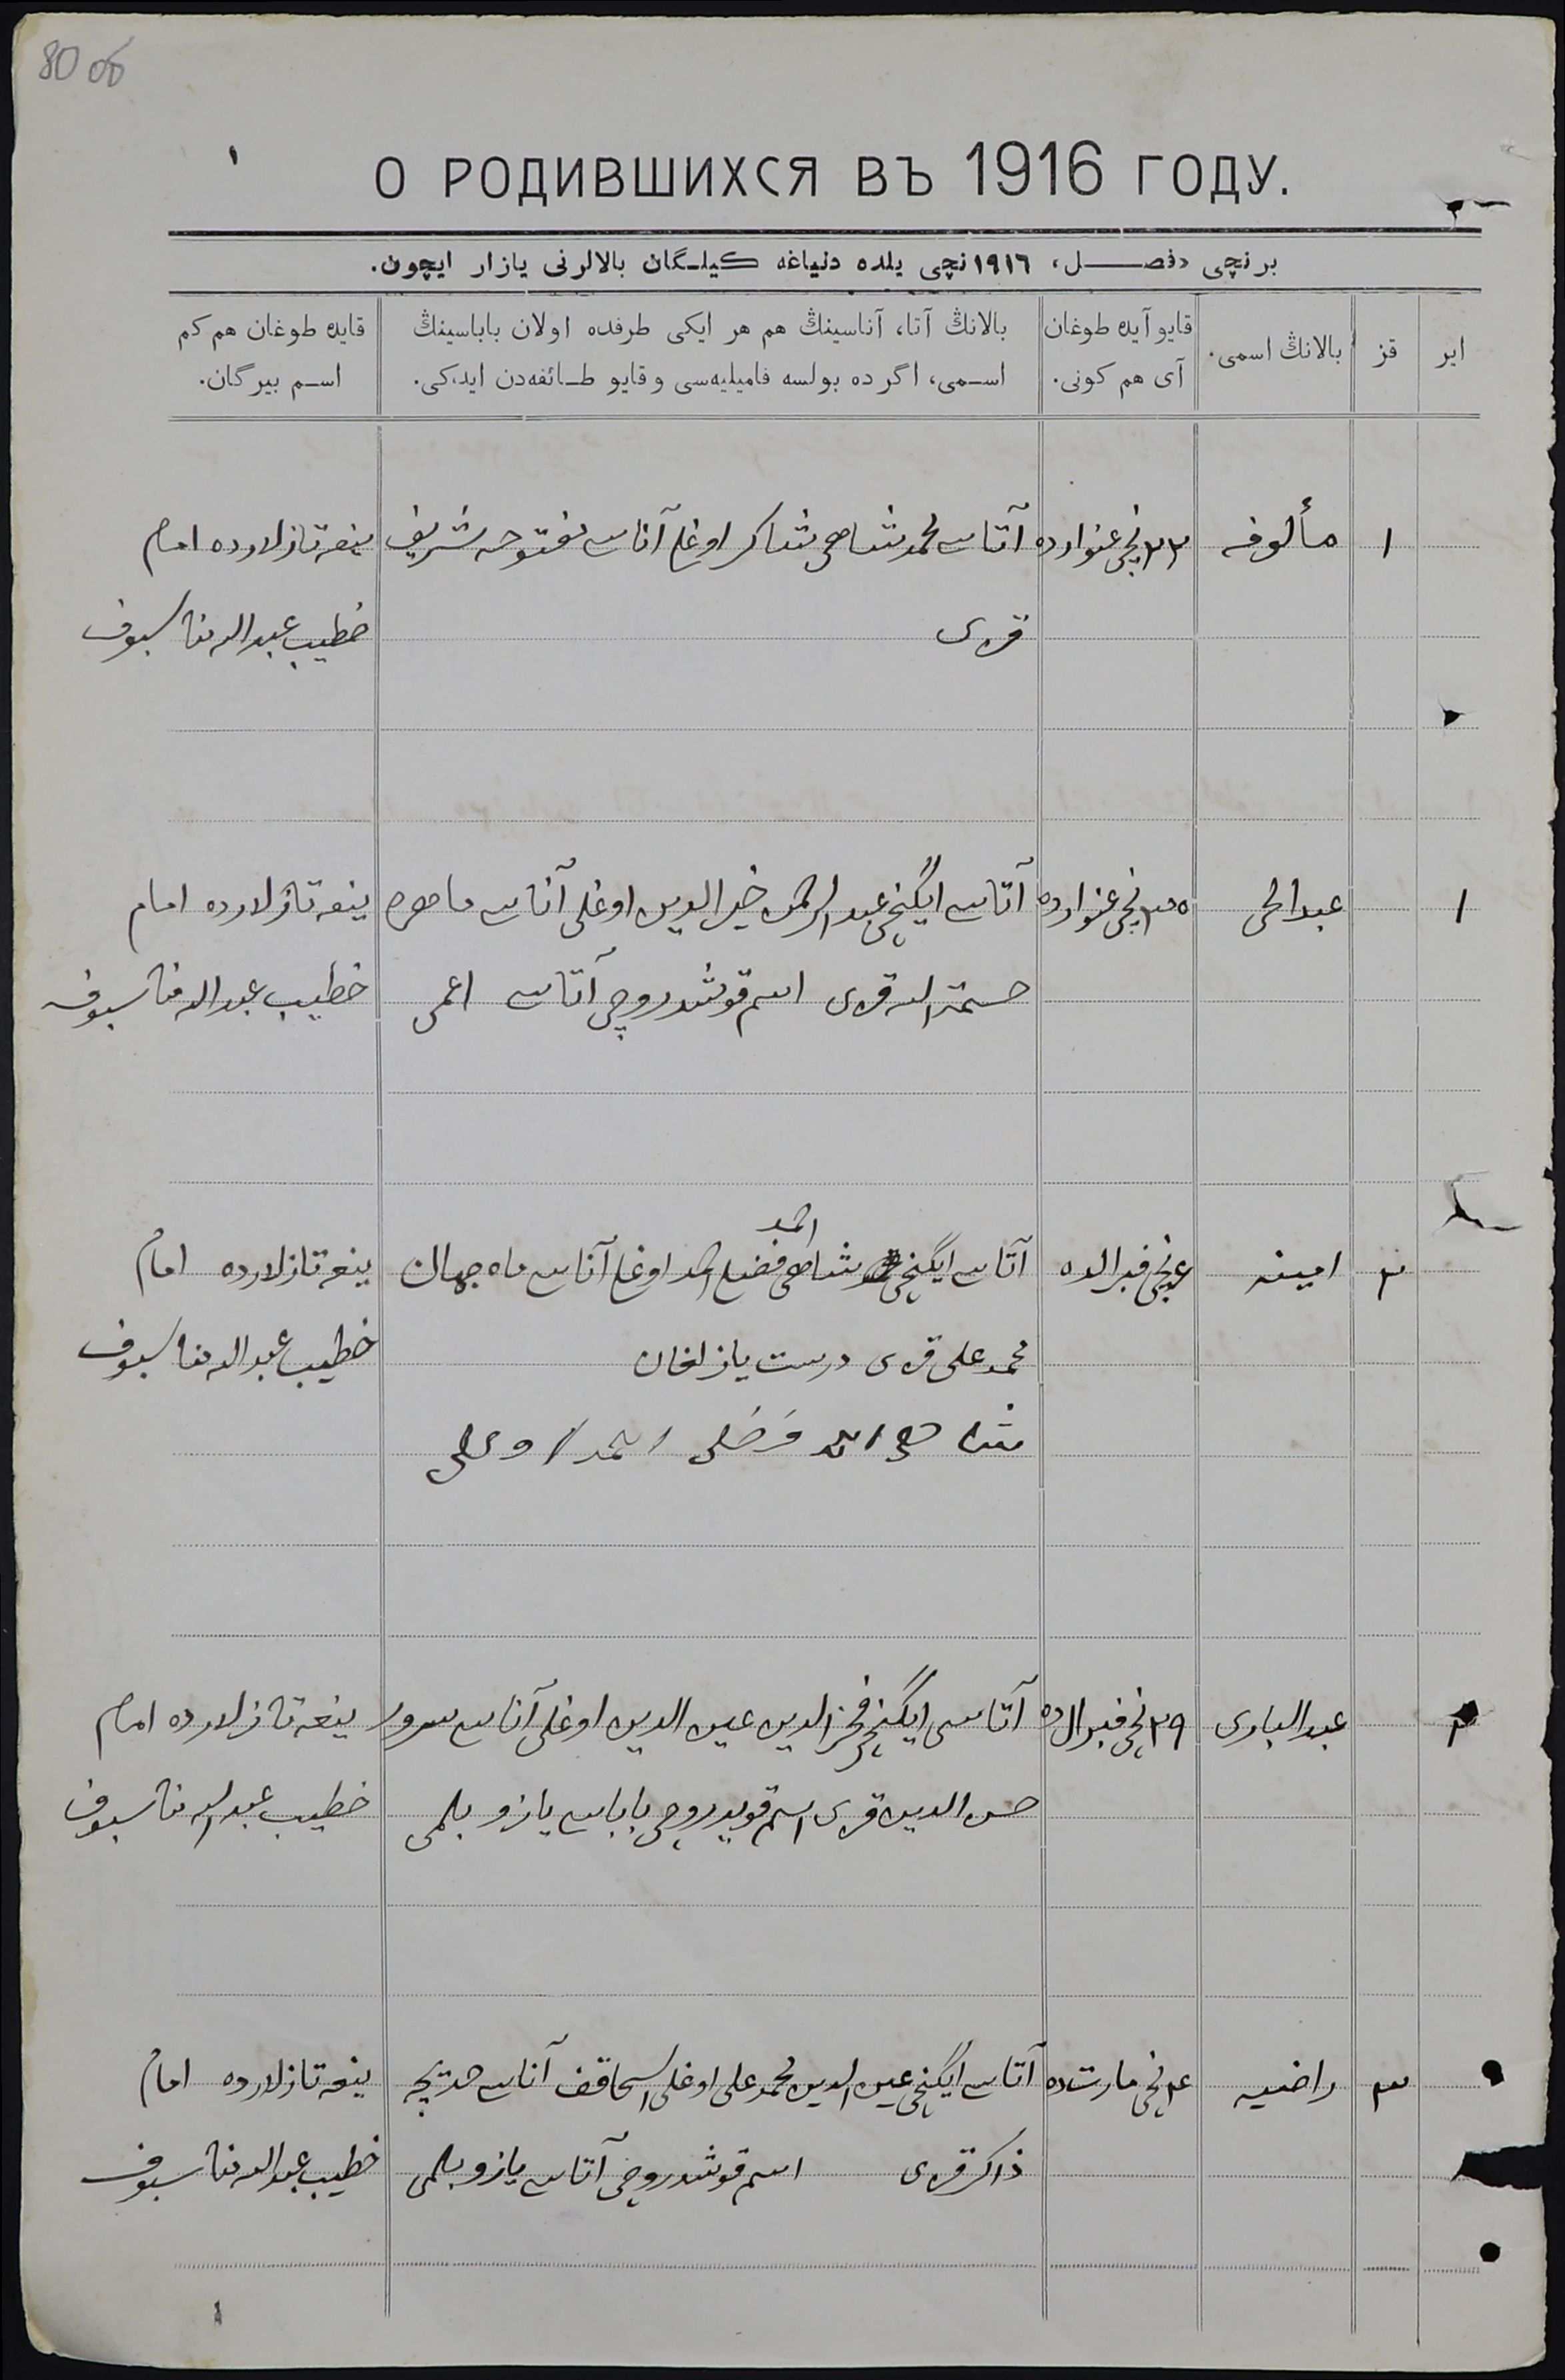 80 об
О РОДИВШИХСЯ ВЪ 1916 ГОДУ.
برنچی «فصل» ١٩١٦نچی یلده دنیاغه کیلگان بالالرنی یازار ایچون.
ایر
قز
بالانڭ اسمی.
قایو آیده طوغان
آی هم کونی.
بالانڭ آتا، آناسینڭ هم هر ایکی طرفده اولان باباسینڭ
اسمی، اگرده بولسه فامیلیه‌سی و قایو طائفه‌دن ایدکی.
قایده طوغان هم کم
اسم بیرگان.
١ مألوفه ٢٢نچی غنوارده آتاسی محمد شاهی شاکر اوغلی آناسی مفتوحه شریف ینعه تازلارده امام
قزی خطیب عبدالله
١ عبدالحی ٢٥نچی غنوارده آتاسی ایگنچی عبدالرحمن خیرالدین اوغلی آناسی ماهره ینعه تازلارده امام
حسمة الله قزی اسم قوشدروچی آتاسی اعمی خطیب عبدالله
احمد
٢ امینه ٤نچی فبرالده آتاسی ایگنچی شاهی فضلی احمد اوغلی آناسی ماه جهان ینعه تازلارده امام
محمد علی قزی درست یازلغان خطیب عبدالله
شاهی احمد فضلی احمد اوغلی
٢ عبدالباری ٢٩نچی فبرال ده آتاسی ایگنچی فخرالدین عین الدین اوغلی آناسی سرور ینعه تازلارده امام
حسن الدین قزی اسم قویدروچی باباسی یازو بلمی خطیب عبدالله
٣ راضیه ٤نچی مارت ده آتاسی ایگنچی عین الدین محمد علی اوغلی اسحاقف آناسی خدیجه ینعه تازلارده امام
ذاکر قزی اسم قوشدروچی آتاسی یازو بلمی خطیب عبدالله